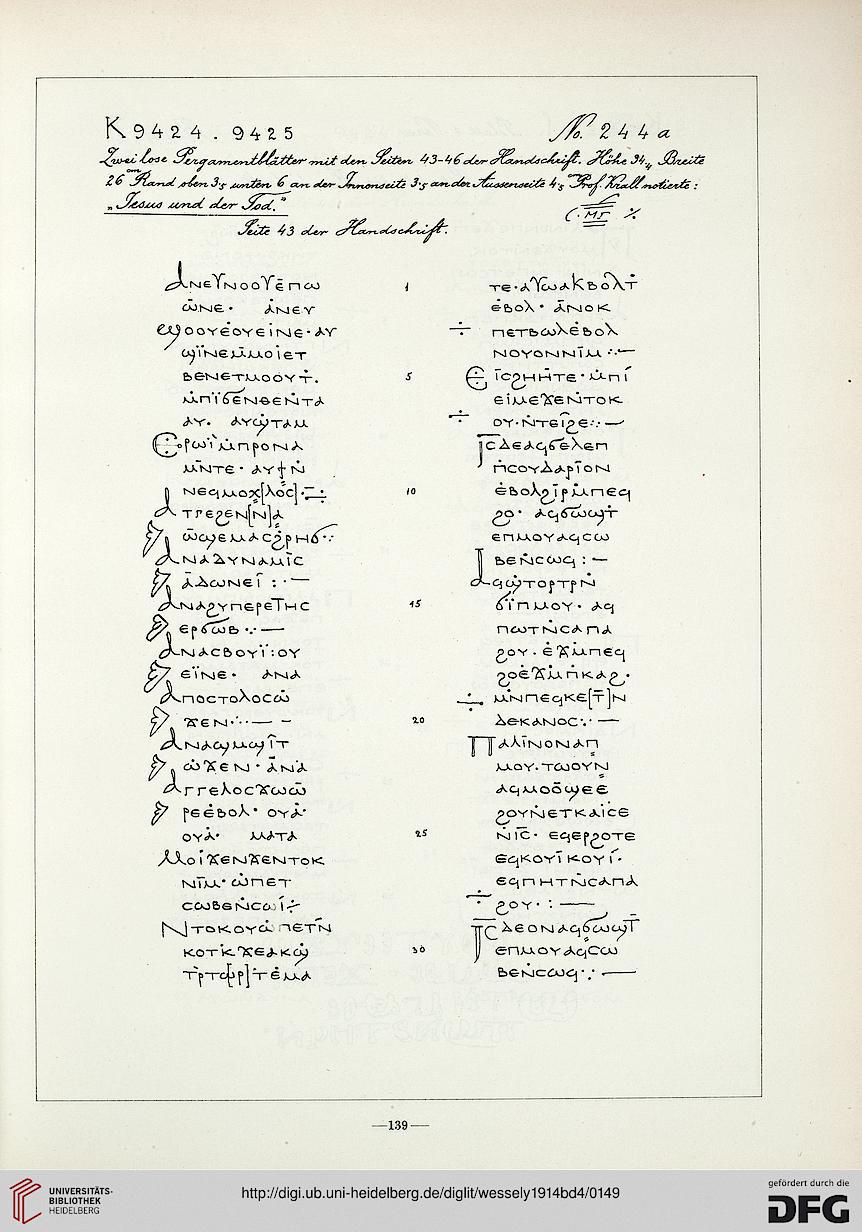 K 9424 . 9425
No. 244 a
Zwei lose Pergamentblätter mit den Seiten 43-46 der Handschrift. Höhe 34,, Breite
26 cm Rand oben 3,5 unten 6 an der Innenseite 3,5 an der Aussenseite 4,5 cm Prof. Krall notierte:
„Jesus und der Tod."
(. MS. %
Seite 43 der Handschrift.
ⲁⲛⲉⲩⲛⲟⲟⲩⲉⲡⲱ
ⲱⲛⲉ· ⲁⲛⲉⲩ
ϣⲟⲟⲩⲉⲟⲩⲉⲓⲛⲉ·ⲁⲩ
ϣⲓⲛⲉⲙⲙⲟⲓⲉⲧ
ⲃⲉⲛⲉⲧⲙⲟⲟⲩⲧ.
ⲙⲡⲓϭⲉⲛⲑⲉⲛⲧⲁ
ⲁⲩ. ⲁⲩϣⲧⲁⲙ
ⲉⲣⲱⲓⲙⲡⲣⲟⲛⲁ
ⲙⲛⲧⲉ· ⲁⲩϯⲛ
ⲛⲉϥⲙⲟⲭ[ⲗⲟⲥ]
ⲁⲧⲣⲉϩⲉⲛ[ⲛ]ⲁ
ⲱϣⲉⲙⲁⲥϩⲣⲏϭ
ⲁⲛⲁⲇⲩⲛⲁⲙⲓⲥ
ⲁⲇⲱⲛⲉⲓ : ·—
ⲁⲛⲁϩⲩⲡⲉⲣⲉⲧⲏⲥ
ⲉⲣϭⲱⲃ ·.· —
ⲁⲛⲁⲥⲃⲟⲩⲓ:ⲟⲩ
ⲉⲓⲛⲉ· ⲁⲛⲁ
ⲁⲡⲟⲥⲧⲟⲗⲟⲥⲱ
ϫⲉⲛ·:·— –
ⲁⲛⲁϣⲙϣⲓⲧ
ⲱϫⲉⲛ· ⲁⲛⲁ
ⲁⲅⲅⲉⲗⲟⲥϫⲱⲱ
ⲣⲉⲉⲃⲟⲗ· ⲟⲩⲁ·
ⲟⲩⲁ· ⲙⲁⲧⲁ
ⲙⲟⲓϫⲉⲛϫⲉⲛⲧⲟⲕ
ⲛⲓⲙ·ⲱⲡⲉⲧ
ⲥⲱⲃⲉⲛⲥⲱⲓ
ⲛⲧⲟⲕⲟⲩⲱⲡⲉⲧⲛ
ⲕⲟⲧⲕ·ϫⲉⲁⲕϣ
ⲧⲣⲧ[ⲱⲣ]ⲧⲉⲙⲁ
1
5
10
15
20
25
30
ⲧⲉ·ⲁⲩⲱⲁⲕⲃⲟⲗⲧ
ⲉⲃⲟⲗ· ⲁⲛⲟⲕ
ⲡⲉⲧⲃⲱⲗⲉⲃⲟⲗ
ⲛⲟⲩⲟⲛⲛⲓⲙ ·:·—
ⲉⲓⲥϩⲏⲏⲧⲉ·ⲙⲡⲓ
ⲉⲓⲙⲉϫⲉⲛⲧⲟⲕ
ⲟⲩ·ⲛⲧⲉⲓϩⲉ:· —
ⲓⲥⲇⲉⲁϥϭⲉⲗⲉⲡ
ⲡⲥⲟⲩⲇⲁⲣⲓⲟⲛ
ⲉⲃⲟⲗϩⲓⲣⲙⲡⲉϥ
ϩⲟ· ⲁϥϭⲱϣⲧ
ⲉⲡⲙⲟⲩⲁϥⲥⲱ
ⲃⲉⲛⲥⲱϥ : —
ⲁϥϣⲧⲟⲣⲧⲣⲛ
ϭⲓⲡⲙⲟⲩ· ⲁϥ
ⲡⲱⲧⲛⲥⲁⲡⲁ
ϩⲟⲩ·ⲉϫⲙⲡⲉϥ
ϩⲟⲉϫⲙⲡⲕⲁϩ·
ⲙⲛⲡⲉϥⲕⲉ[ⲧ]ⲛ
ⲇⲉⲕⲁⲛⲟⲥ·.· —
ⲡⲁⲗⲓⲛⲟⲛⲁⲡ
ⲙⲟⲩ·ⲧⲱⲟⲩⲛ
ⲁϥⲙⲟⲟϣⲉⲉ
ϩⲟⲩⲛⲉⲧⲕⲁⲓⲥⲉ
ⲛⲓⲥ· ⲉϥⲉⲣϩⲟⲧⲉ
ⲉϥⲕⲟⲩⲓⲕⲟⲩⲓ·
ⲉϥⲡⲏⲧⲛⲥⲁⲡⲁ
ϩⲟⲩ· : —
ⲓⲥⲇⲉⲟⲛⲁϥϭⲱϣⲧ
ⲉⲡⲙⲟⲩⲁϥⲥⲱ
ⲃⲉⲛⲥⲱϥ·.· —
—139—
UNIVERSITÄTS-
BIBLIOTHEK
HEIDELBERG
http://digi.ub.uni-heidelberg.de/diglit/wessely1914bd4/0149
gefördert durch die
DFG